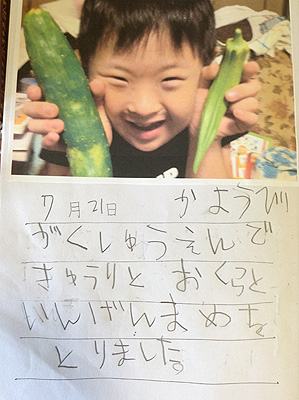 7月21日 かようび
がくしゅうえんで
きゅうりと おくらと
いんげんまめを
とりました。